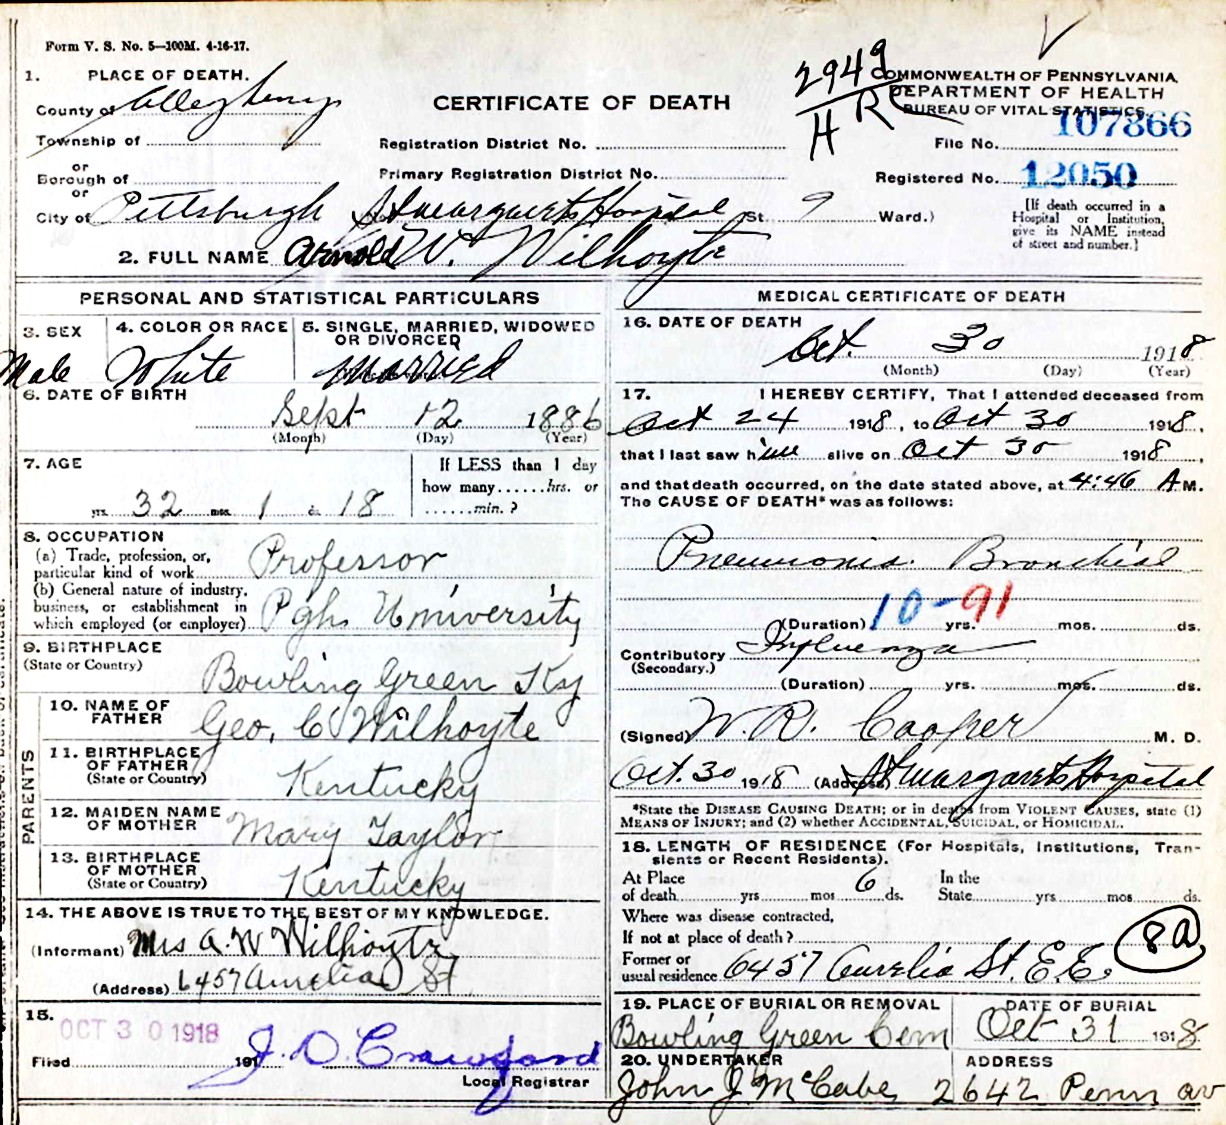 Form V. S. No. 5—100M. 4-16-17.
1. PLACE OF DEATH.
County of Allegheny
Township of
or
Borough of
or
City of Pittsburgh St Margarets Hospital St. 9 Ward.)
CERTIFICATE OF DEATH
Registration District No.
Primary Registration District No.
2949
H R
COMMONWEALTH OF PENNSYLVANIA
DEPARTMENT OF HEALTH
BUREAU OF VITAL STATISTICS
File No. 107866
Registered No. 12050
[If death occurred in a
Hospital or Institution,
give its NAME instead
of street and number.]
2. FULL NAME Arnold W. Wilhoyte
PERSONAL AND STATISTICAL PARTICULARS
3. SEX
Male
4. COLOR OR RACE
White
5. SINGLE, MARRIED, WIDOWED
OR DIVORCED
Married
6. DATE OF BIRTH
Sept 12 1886
(Month) (Day) (Year)
7. AGE
32 yrs. 1 mos. 18 ds.
If LESS than 1 day
how many......hrs. or
......min.?
8. OCCUPATION
(a) Trade, profession, or,
particular kind of work Professor
(b) General nature of industry,
business, or establishment in
which employed (or employer) Pgh University
9. BIRTHPLACE
(State or Country)
Bowling Green Ky
PARENTS
10. NAME OF
FATHER
Geo. C Wilhoyte
11. BIRTHPLACE
OF FATHER
(State or Country)
Kentucky
12. MAIDEN NAME
OF MOTHER
Mary Taylor
13. BIRTHPLACE
OF MOTHER
(State or Country)
Kentucky
14. THE ABOVE IS TRUE TO THE BEST OF MY KNOWLEDGE.
(Informant) Mrs A. W Wilhoyte
(Address) 6457 Aurelia St
15.
OCT 30 1918
Filed 191 J. D. Crawford
Local Registrar
MEDICAL CERTIFICATE OF DEATH
16. DATE OF DEATH
Oct. 30 1918
(Month) (Day) (Year)
17. I HEREBY CERTIFY, That I attended deceased from
Oct 24 1918, to Oct 30 1918,
that I last saw him alive on Oct 30 1918,
and that death occurred, on the date stated above, at 4:46 A M.
The CAUSE OF DEATH* was as follows:
Pneumonia. Bronchial
10-91
(Duration) yrs. mos. ds.
Contributory Influenza
(Secondary.)
(Duration) yrs. mos. ds.
(Signed) W. R. Cooper M. D.
Oct. 30 1918 (Address) St Margarets Hospital
*State the DISEASE CAUSING DEATH; or in deaths from VIOLENT CAUSES, state (1)
MEANS OF INJURY; and (2) whether ACCIDENTAL, SUICIDAL, or HOMICIDAL.
18. LENGTH OF RESIDENCE (For Hospitals, Institutions, Tran-
sients or Recent Residents).
At Place
of death yrs mos 6 ds.
In the
State yrs mos ds.
Where was disease contracted,
If not at place of death?
Former or
usual residence 6457 Aurelia St. E.E.
8a
19. PLACE OF BURIAL OR REMOVAL
Bowling Green Cem
DATE OF BURIAL
Oct 31 1918
20. UNDERTAKER
John J McCabe
ADDRESS
2642 Penn av